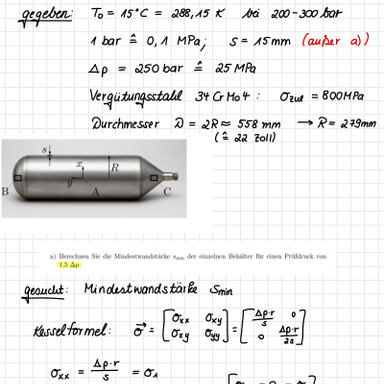 gegeben: T₀ = 15°C = 288,15 K bei 200-300 bar
1 bar ≙ 0,1 MPa; s = 15 mm (außer a))
Δp = 250 bar ≙ 25 MPa
Vergütungsstahl 34 Cr Mo 4 : σzul = 800 MPa
Durchmesser D = 2R ≈ 558 mm → R = 279 mm
(≙ 22 Zoll)
s
x
R
y
B
A
C
a) Berechnen Sie die Mindestwandstärke smin der einzelnen Behälter für einen Prüfdruck von
1,5 Δp.
gesucht: Mindestwandstärke Smin
Kesselformel: σ⃗ = [σxx σxy] = [Δp·r/s 0]
[σxy σyy] [0 Δp·r/2s]
σxx = Δp·r/s = σ₁